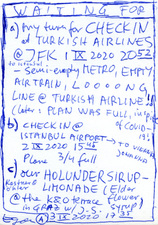 WAITING FOR
a) my turn for CHECK IN
at TURKISH AIRLINES
@ JFK 1 IX 2020 2052
to istanbul
- Semi-empty METRO, EMPTY
AIRTRAIN, LOOOONG
LINE @ TURKISH AIRLINE!!
(later: PLAN WAS FULL, in spite
of Covid-19)
b) CHECKIN @
ISTANBUL AIRPORT → TO VIENNA
2 IX 2020 15
Plane 3/4 full
c) our HOLUNDERSIRUP-
Kastner & Öhler
LIMONADE (Elder
flower
@ the K&Ö terrace syrup)
in GRAZ w/ J.S.
3 IX 2020 17 35